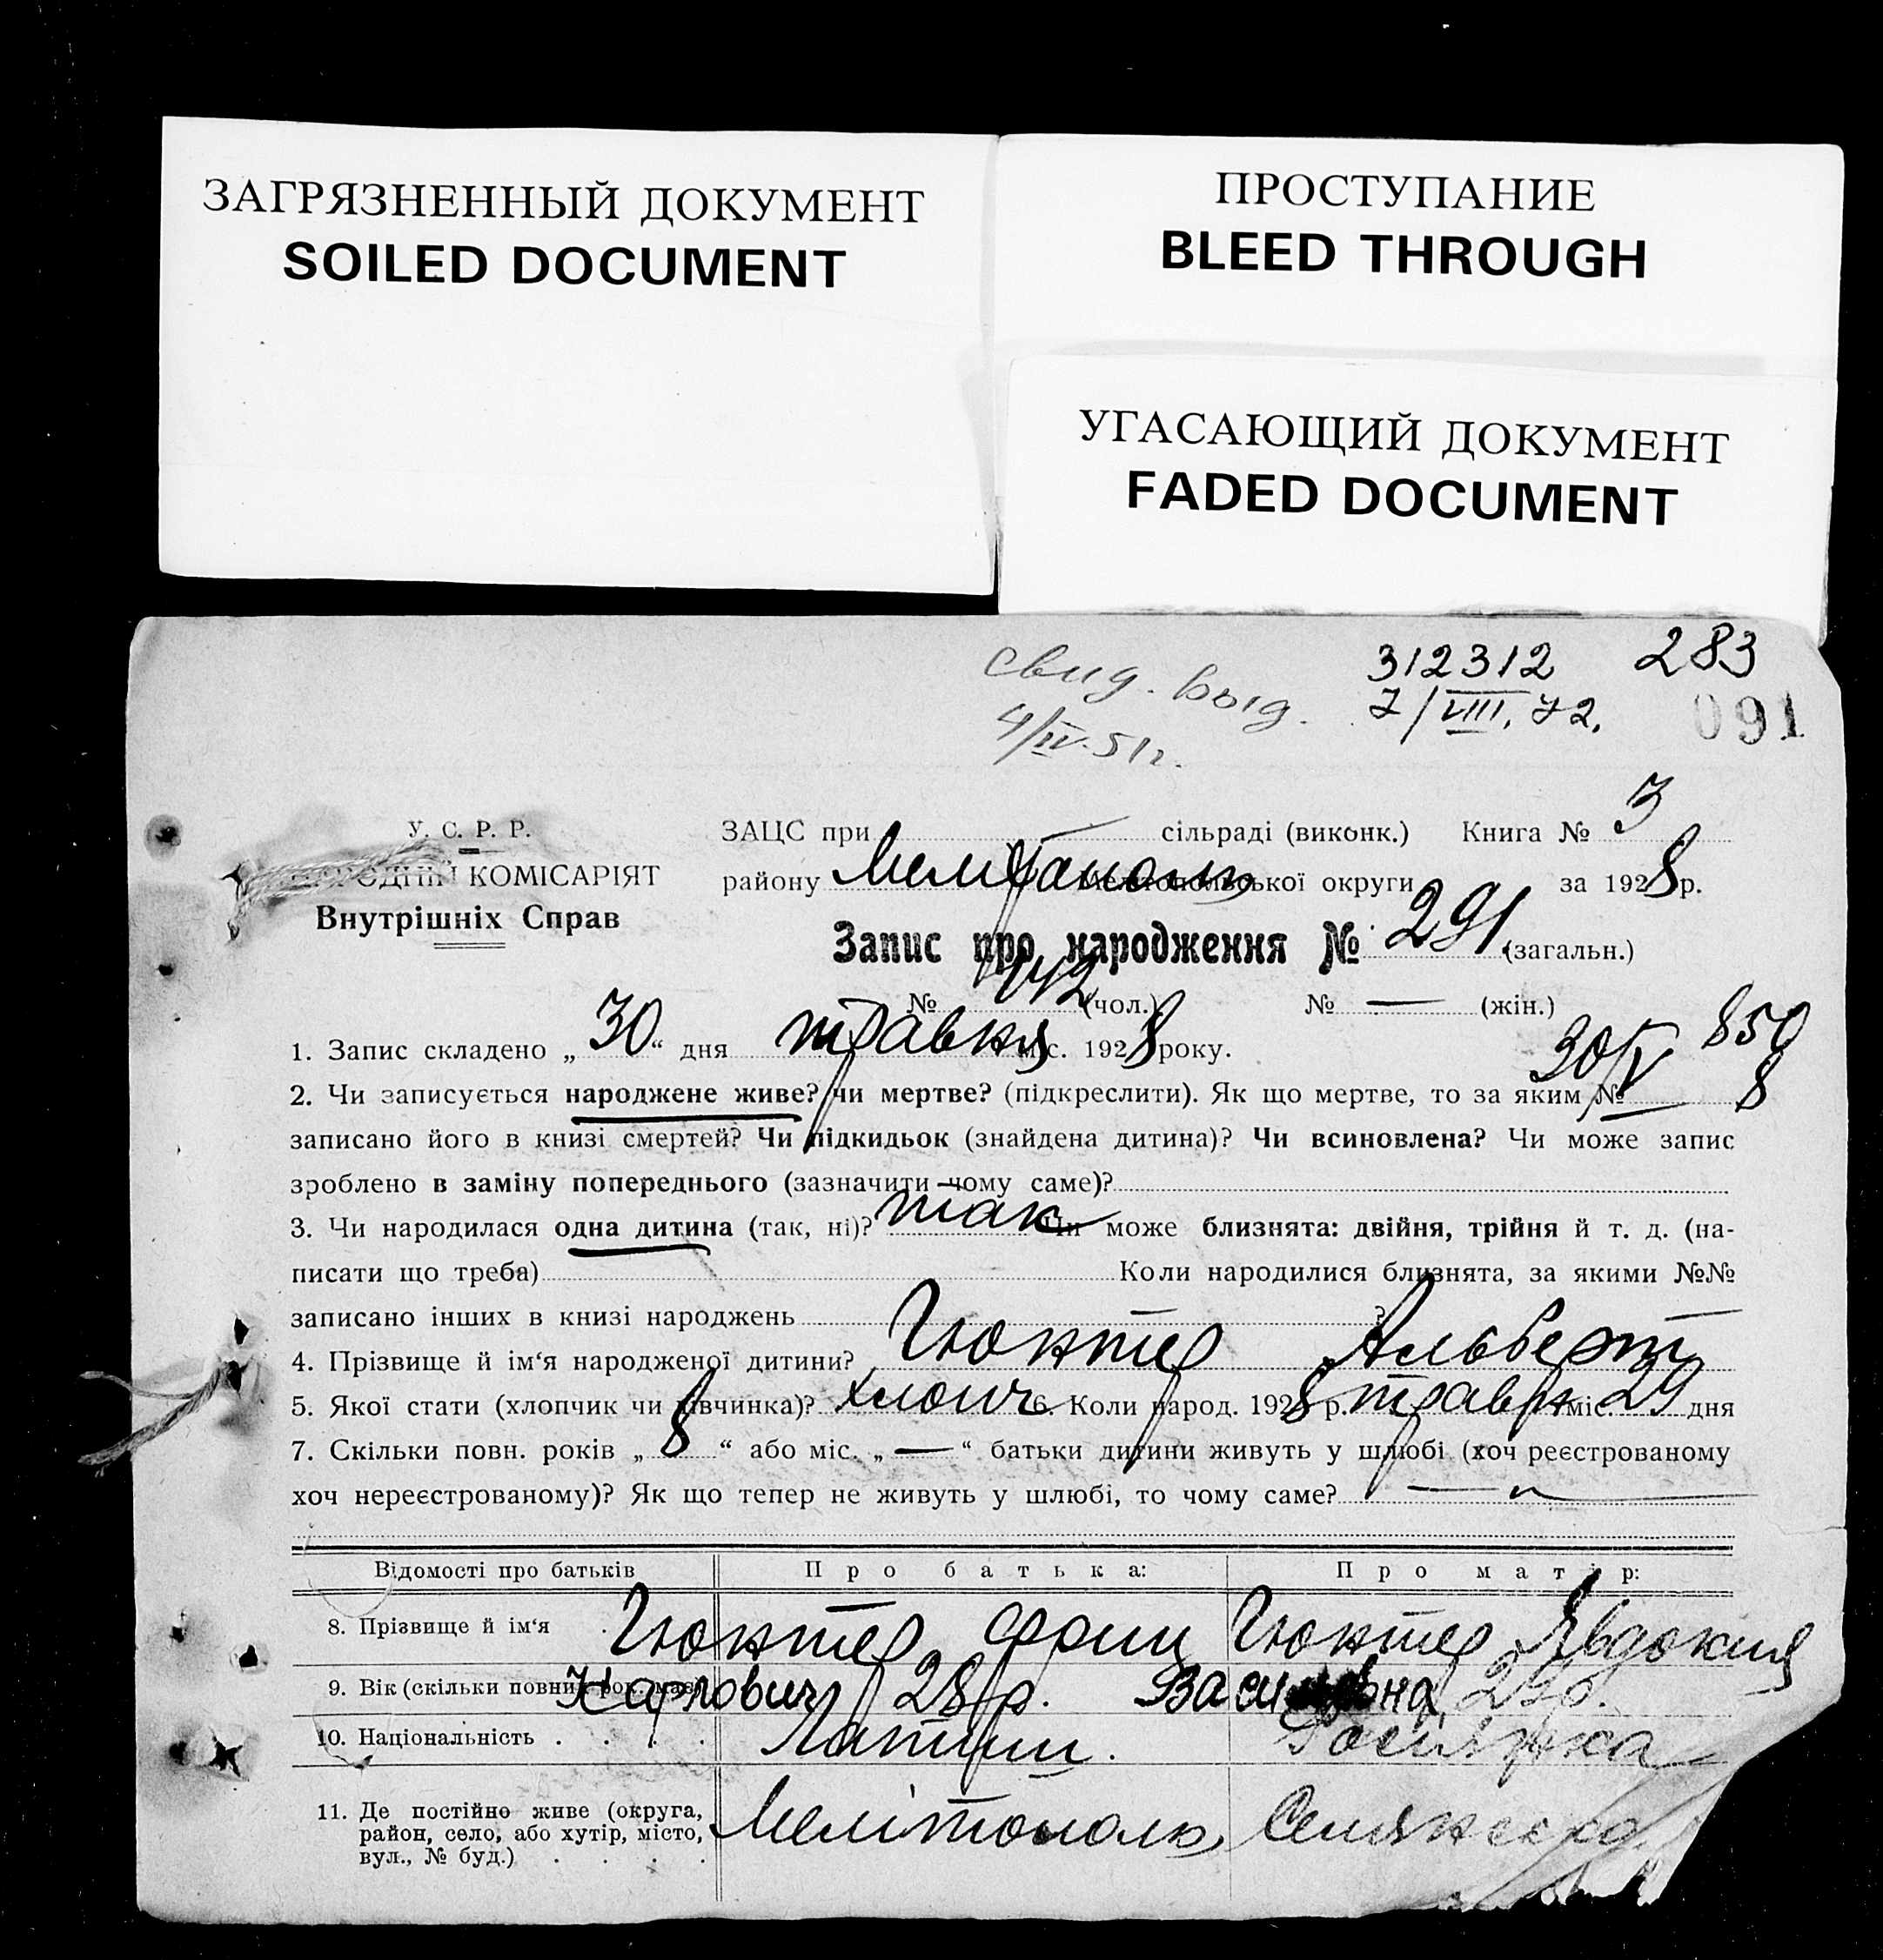 ЗАГРЯЗНЕННЫЙ ДОКУМЕНТ
SOILED DOCUMENT
ПРОСТУПАНИЕ
BLEED THROUGH
УГАСАЮЩИЙ ДОКУМЕНТ
FADED DOCUMENT
свид. выд. 312312 283
4/IV.51г. 7/VIII.72. 091
У. С. Р. Р.
НАРОДНІЙ КОМІСАРІЯТ
Внутрішніх Справ
ЗАЦС при — сільраді (виконк.) Книга № 3
району Мелітополь Мелітопольської округи за 1928 р.
Запис про народження № 291 (загальн.)
№ 142 (чол.) № — (жін.)
1. Запис складено „30“ дня травня міс. 1928 року. 30/V 850
2. Чи записується народжене живе? чи мертве? (підкреслити). Як що мертве, то за яким № 8
записано його в книзі смертей? Чи підкидьок (знайдена дитина)? Чи всиновлена? Чи може запис
зроблено в заміну попереднього (зазначити чому саме)?
3. Чи народилася одна дитина (так, ні)? так Чи може близнята: двійня, трійня й т. д. (на-
писати що треба) Коли народилися близнята, за якими №№
записано інших в книзі народжень ?
4. Прізвище й ім‘я народженої дитини? Гюнтер Альберт
5. Якої стати (хлопчик чи дівчинка)? хлопч 6. Коли народ. 1928 р. травн міс. 29 дня
7. Скільки повн. років „8“ або міс. „—“ батьки дитини живуть у шлюбі (хоч реєстрованому
хоч нереєстрованому)? Як що тепер не живуть у шлюбі, то чому саме? — „ —
Відомості про батьків Про батька: Про матір:
8. Прізвище й ім‘я . Гюнтер Фриц Гюнтер Явдокия
9. Вік (скільки повних рок. має) Карлович 28 р. Василівна 29 р.
10. Національність . . . . Латиш. Росіянка
11. Де постійно живе (округа, Мелітополь
район, село, або хутір, місто,
вул., № буд.) . . . .